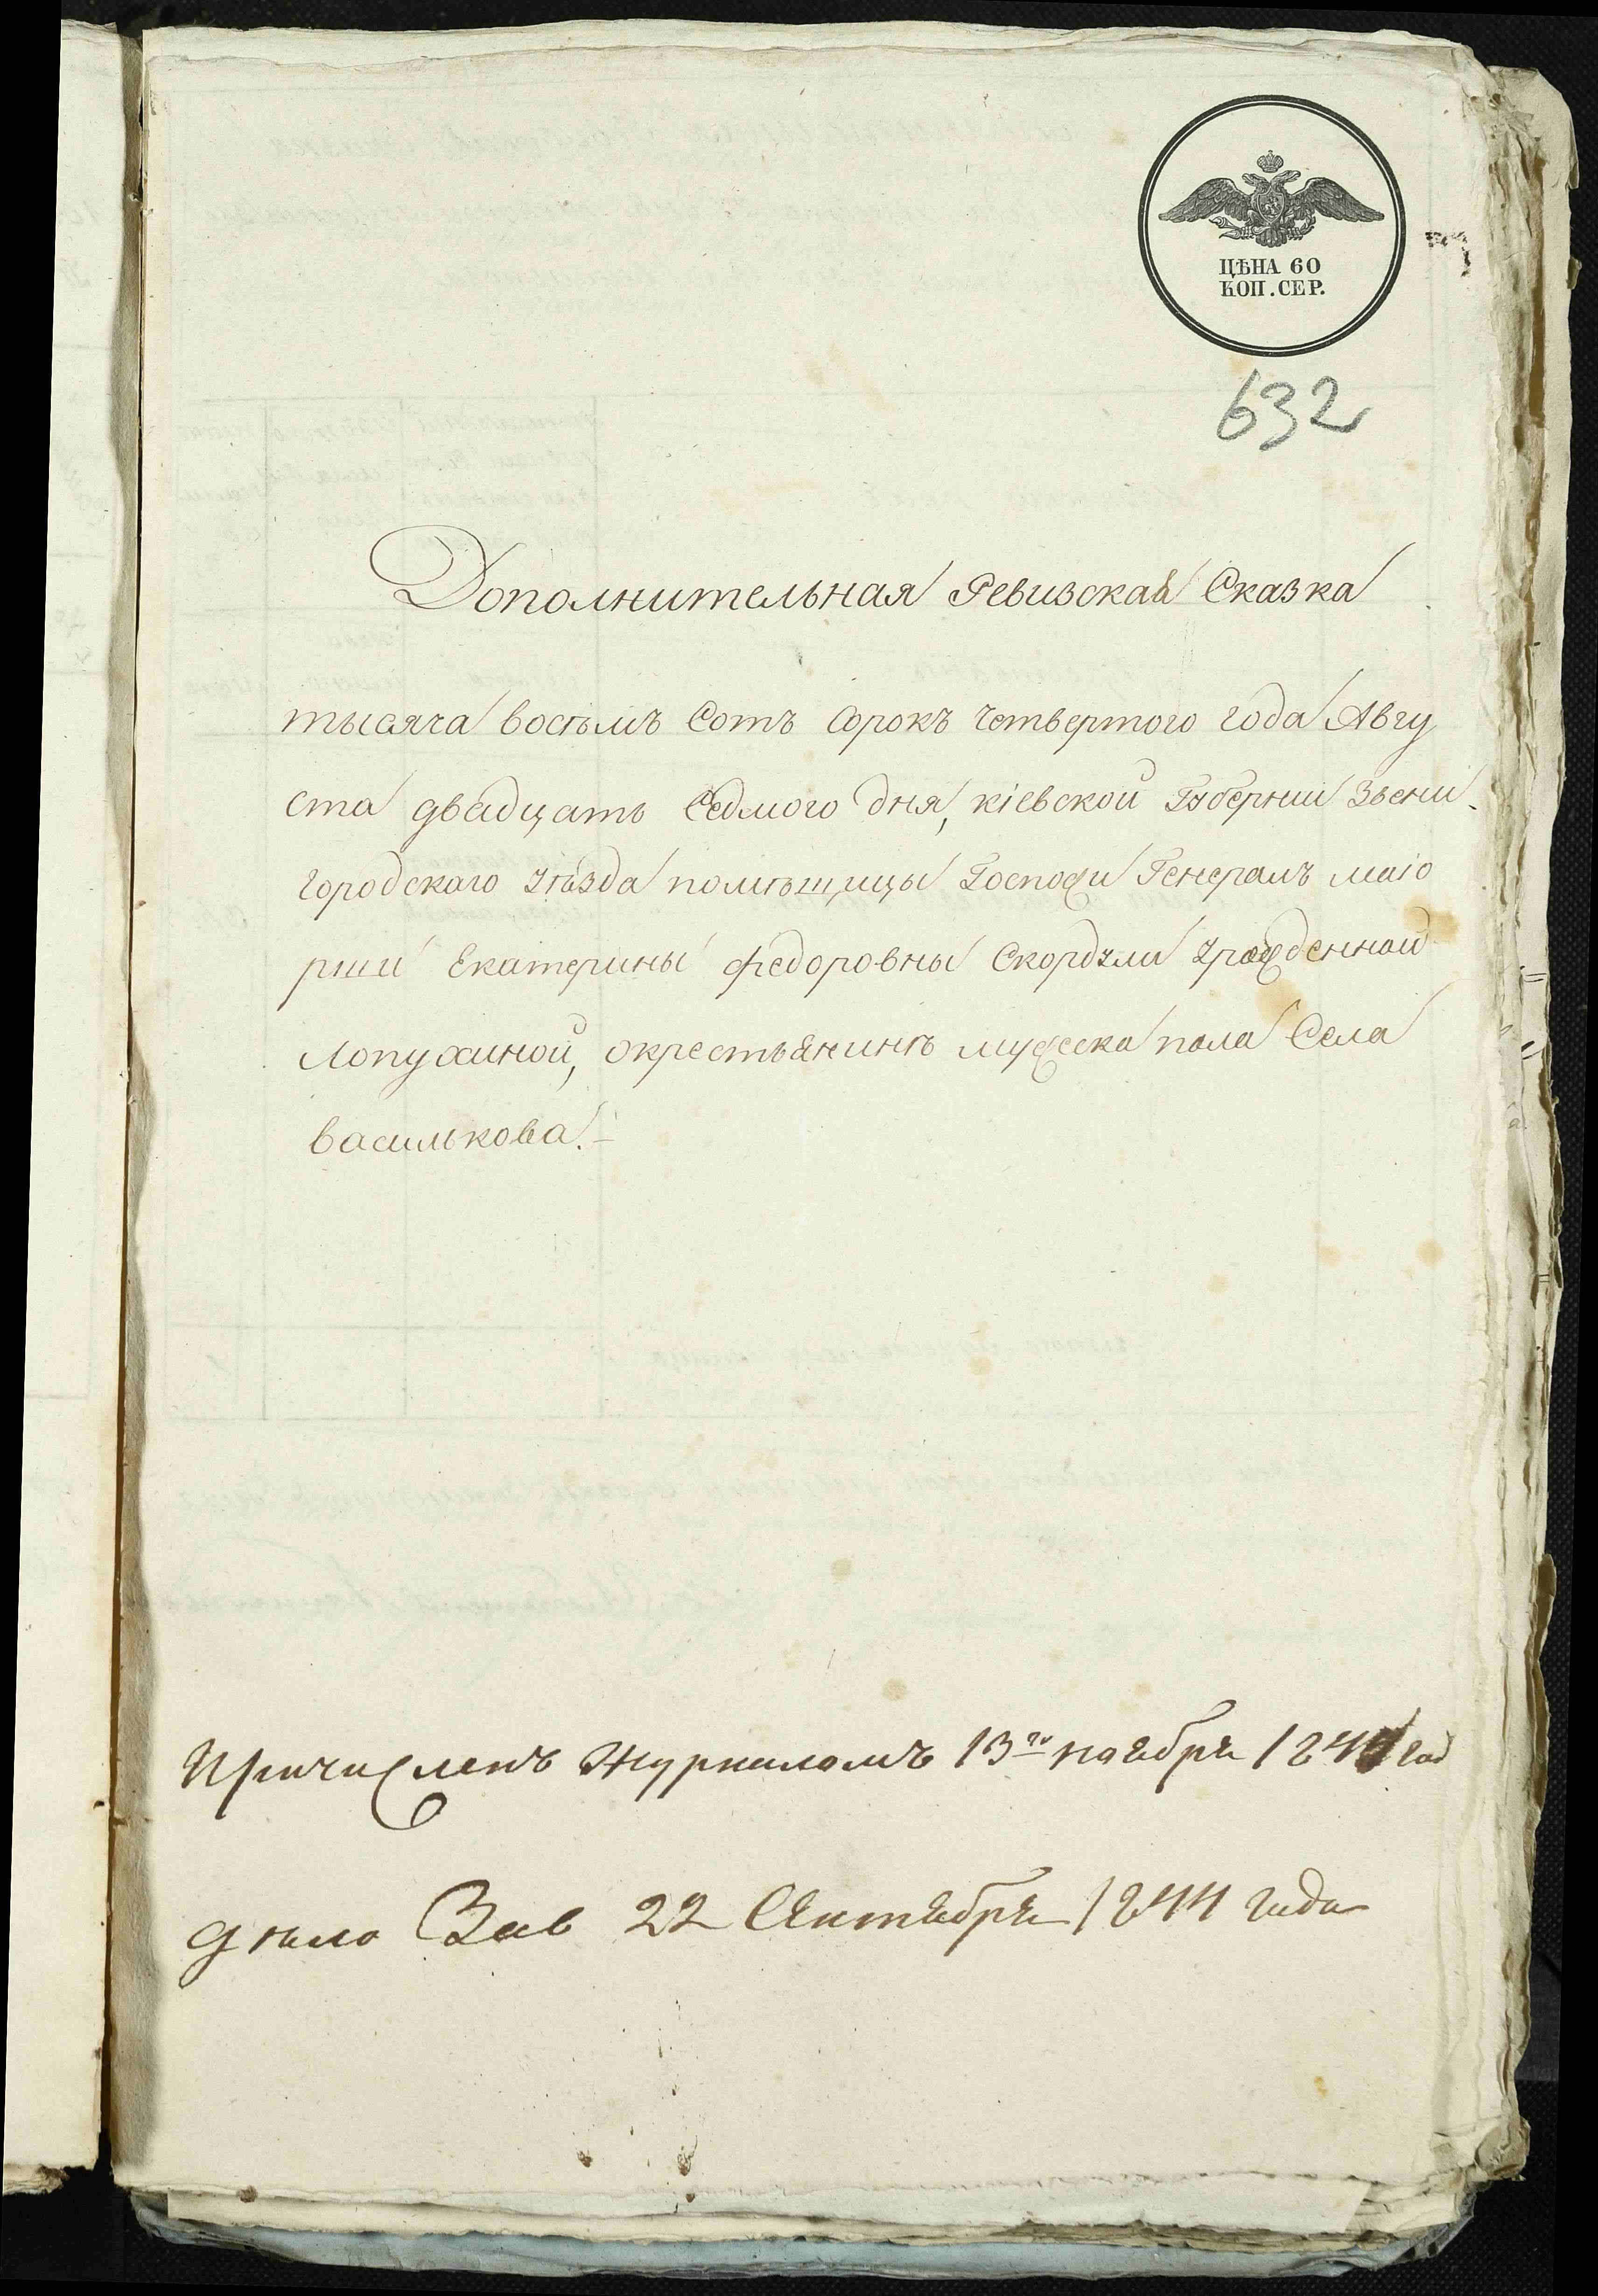 ЦѢНА 60
КОП. СЕР.
632
Дополнительная Ревизская Сказка
тысяча восѣмъ Сотъ Сорокъ Четвертого года Авгу
ста двадцать Седмого дня, кіевской Губерніи Звени-
городскаго уѣзда помѣщицы Госпожи Генералъ маіо
рши Екатерины Федоровны Скордули урожденной
Лопухиной, окрестьянинѣ мужеска пола Села
василькова.-
Причисленъ Журналомъ 13го ноября 1844 год
дѣло Зав 22 Сентября 1844 года